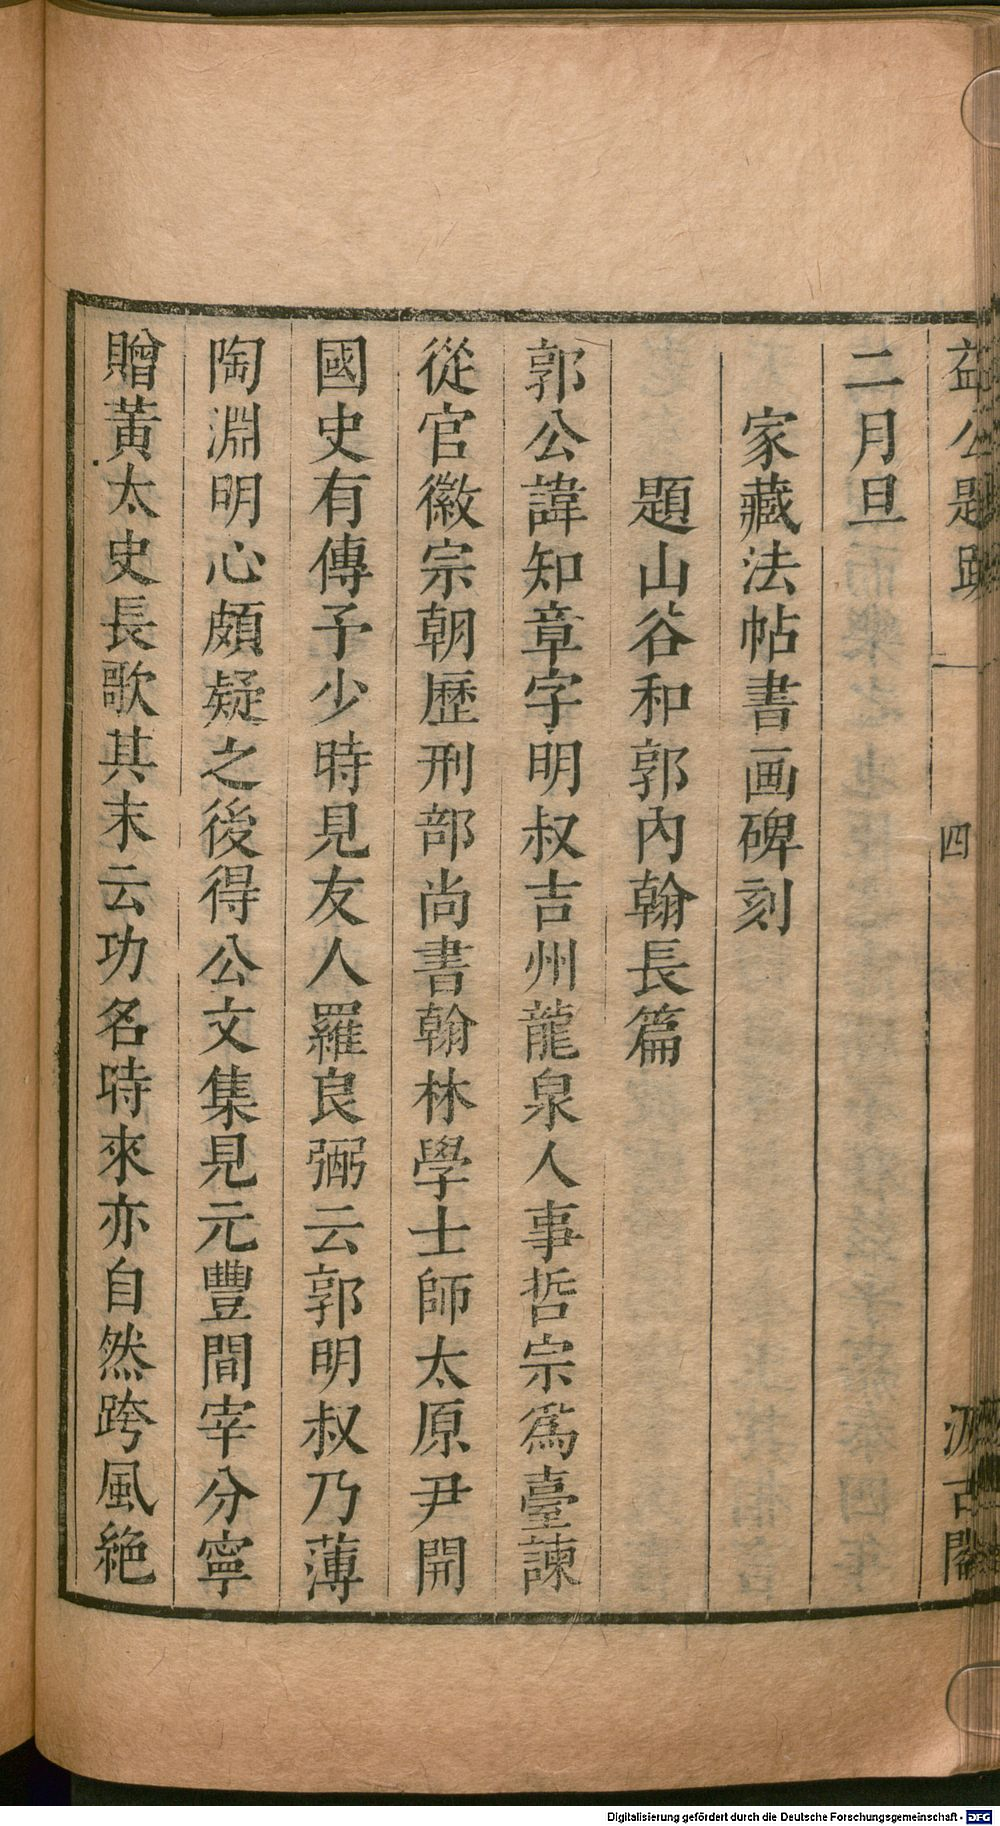 益公題跋
四
汲古閣
二月旦
家藏法帖書画碑刻
題山谷和郭內翰長篇
郭公諱知章字明叔吉州龍泉人事哲宗爲臺諫
從官徽宗朝歷刑部尚書翰林學士師太原尹開
國史有傳予少時見友人羅良弼云郭明叔乃薄
陶淵明心頗疑之後得公文集見元豐間宰分寧
贈黃太史長歌其末云功名時來亦自然跨風絶
Digitalisierung gefördert durch die Deutsche Forschungsgemeinschaft - DFG